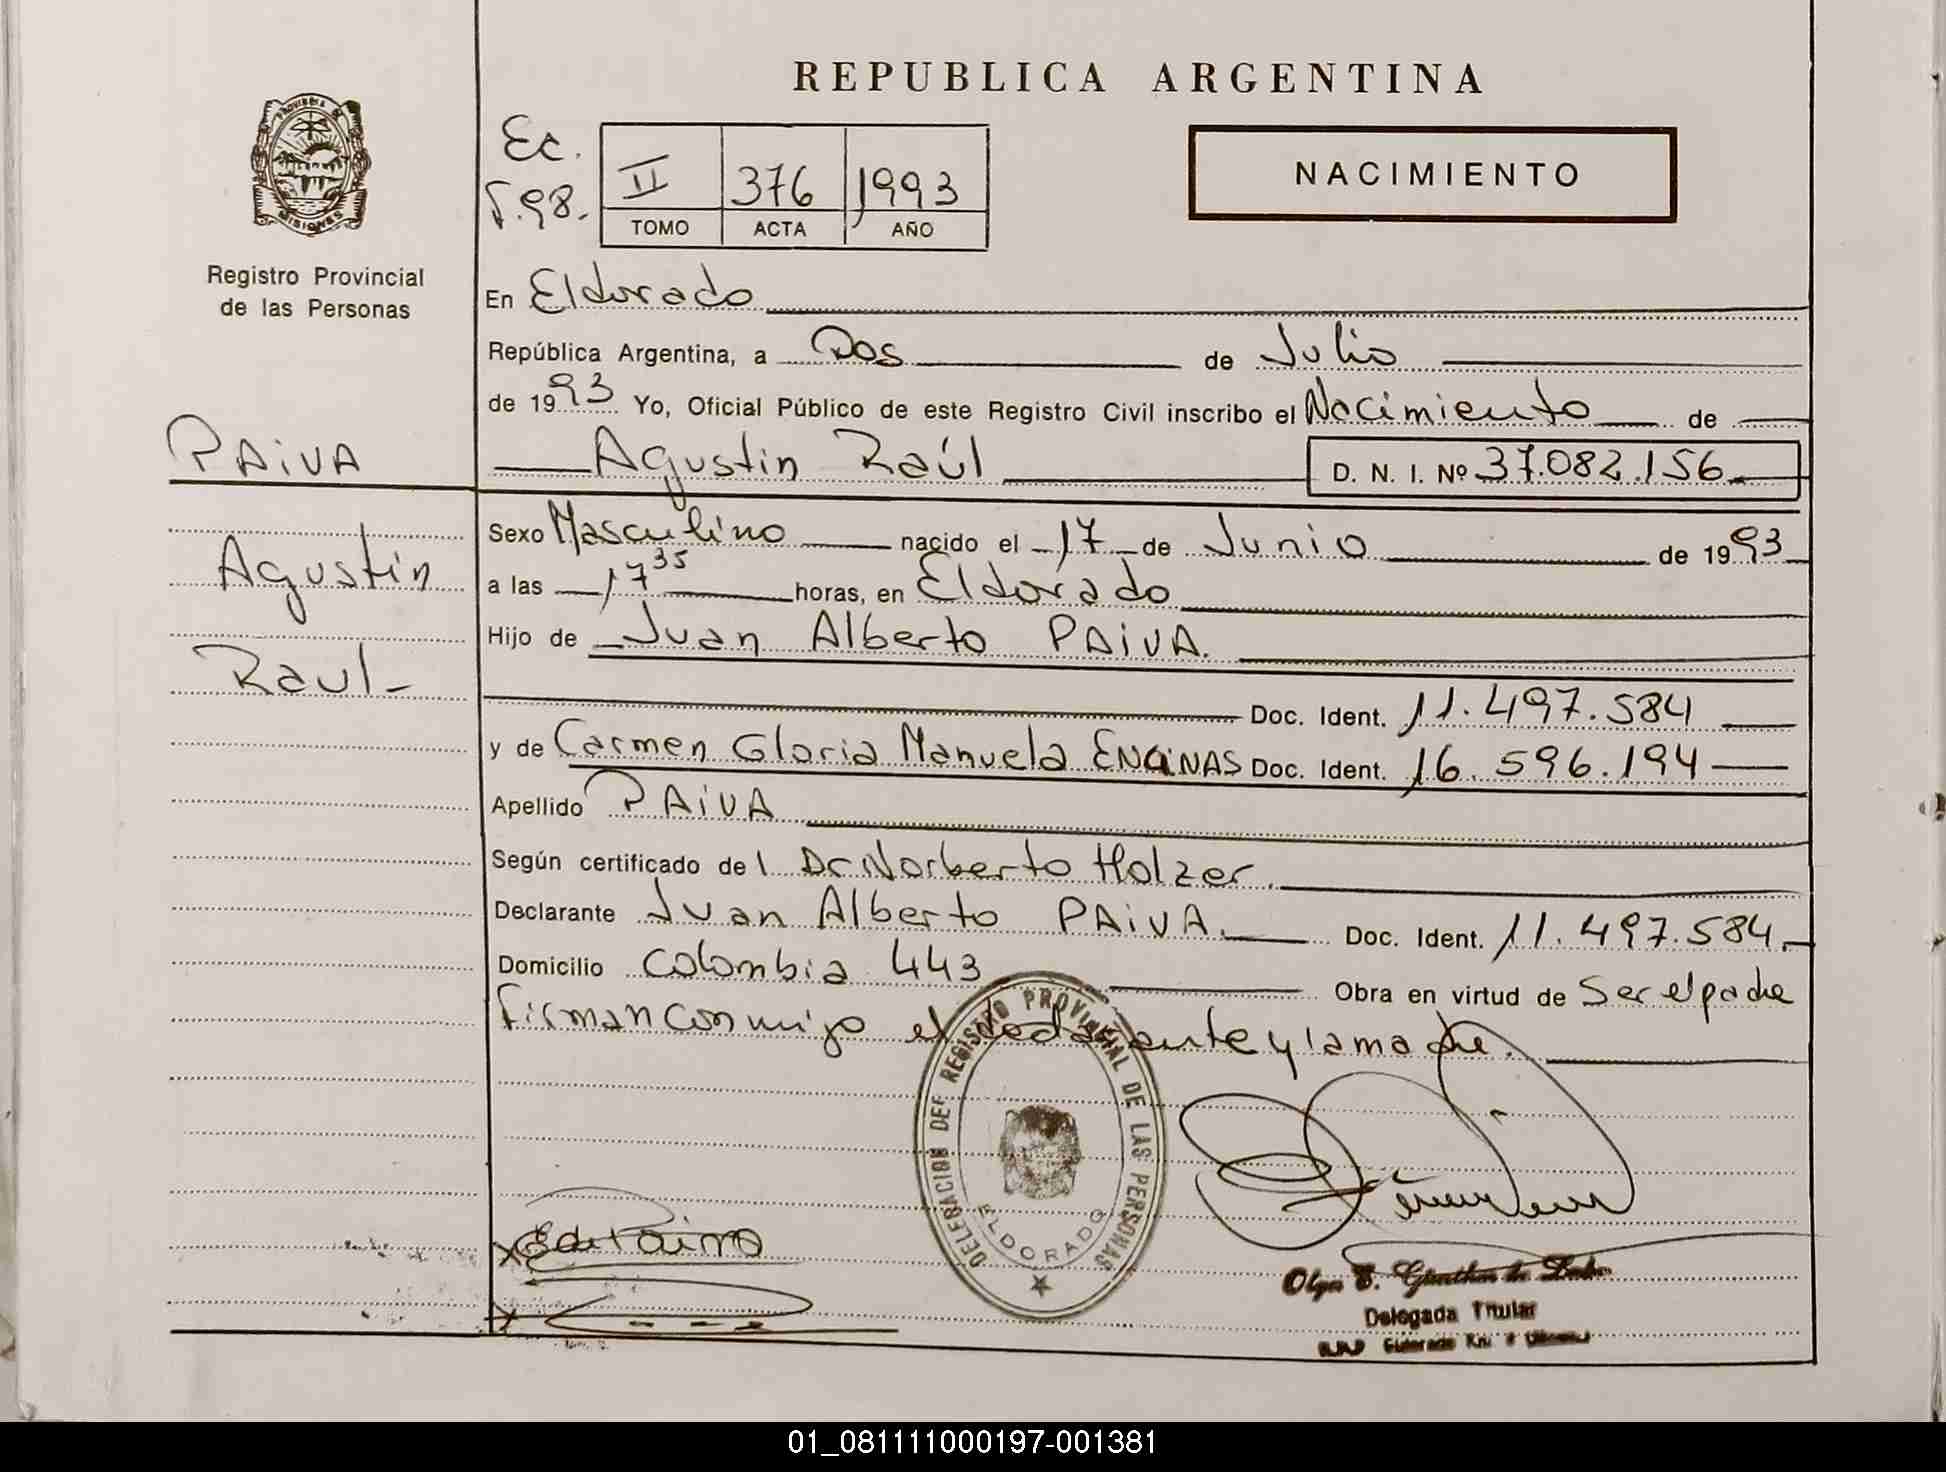 REPUBLICA ARGENTINA
PROVINCIA DE
MISIONES
Registro Provincial
de las Personas
Ec.
5.98.
II 376 1993
TOMO ACTA AÑO
NACIMIENTO
En Eldorado
República Argentina, a Dos de Julio
de 1993 Yo, Oficial Público de este Registro Civil inscribo el Nacimiento de
Agustin Raúl D. N. I. Nº 37.082.156
PAIVA
Agustin
Raul-
Sexo Masculino nacido el 17 de Junio de 1993
a las 17 35 horas, en Eldorado
Hijo de Juan Alberto PAIVA.
Doc. Ident. 11.497.584
y de Carmen Gloria Manuela ENCINAS Doc. Ident. 16.596.194
Apellido PAIVA
Según certificado del Dr Norberto Holzer.
Declarante Juan Alberto PAIVA. Doc. Ident. 11.497.584
Domicilio Colombia 443 Obra en virtud de Ser el padre
Firman conmigo el declarante y la madre.
DELEGACION DEL REGISTRO PROVINCIAL DE LAS PERSONAS
ELDORADO
Olga E.
Delegada Titular
01_081111000197-001381